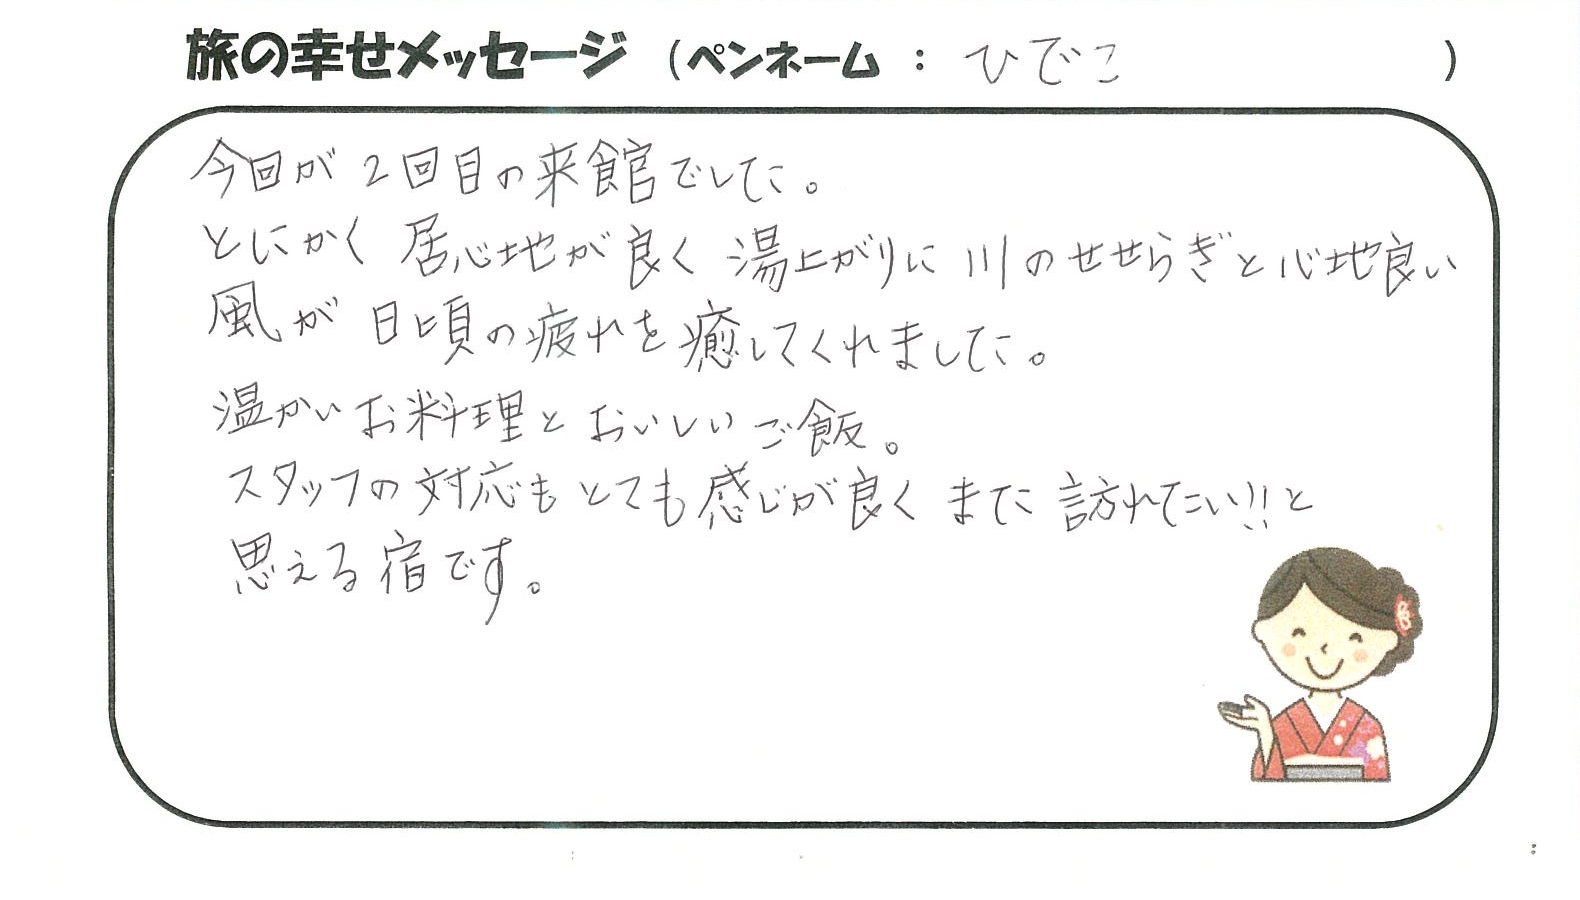 旅の幸せメッセージ (ペンネーム : ひでこ )
今回が2回目の来館でした。
とにかく居心地が良く湯上がりに川のせせらぎと心地良い
風が日頃の疲れを癒してくれました。
温かいお料理とおいしいご飯。
スタッフの対応もとても感じが良くまた訪れたい!!と
思える宿です。